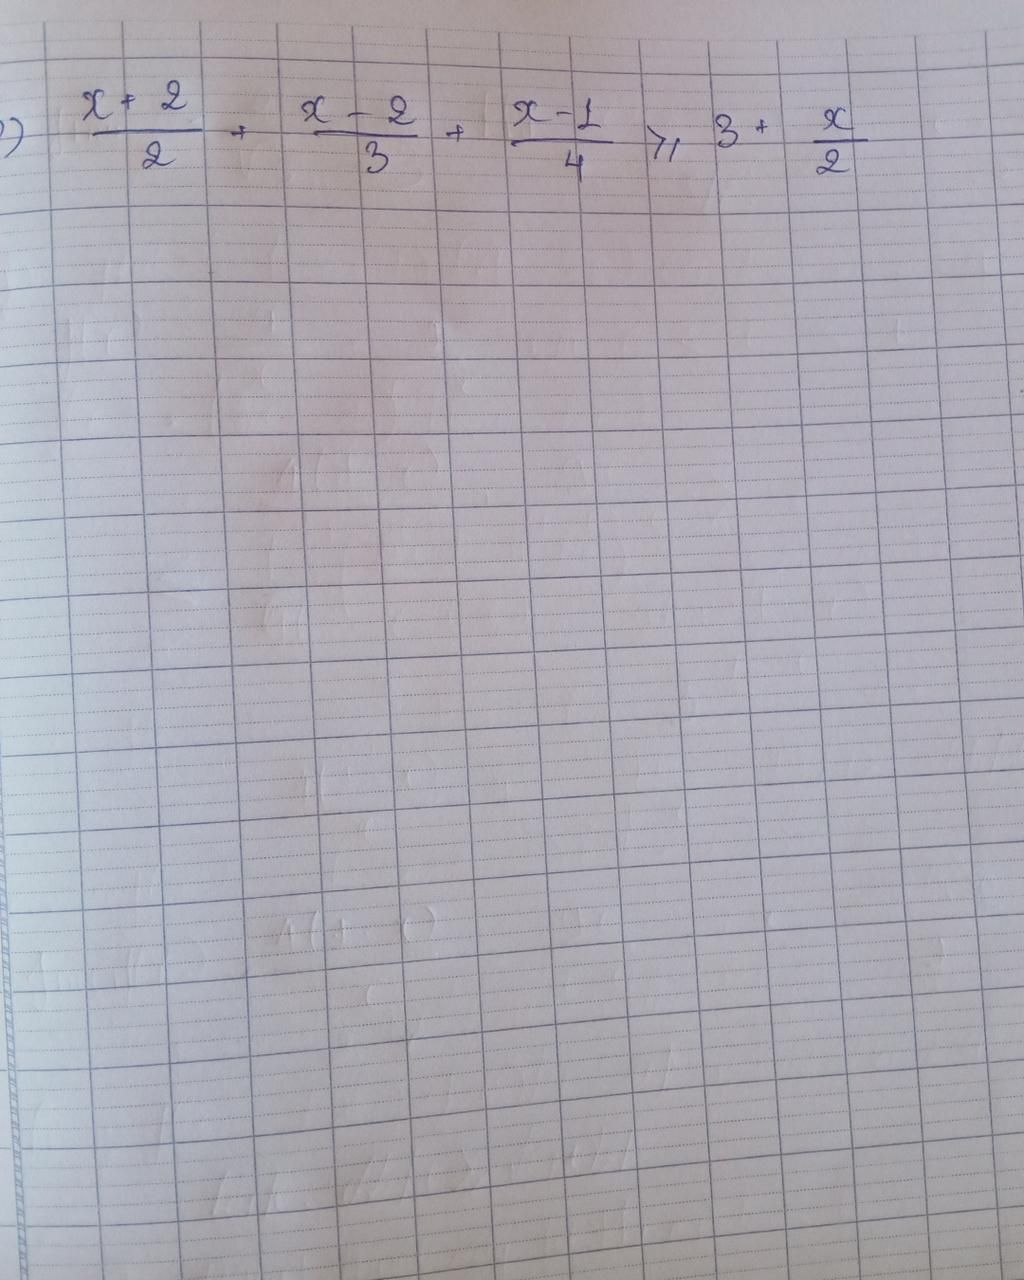 ) x + 2/2 + x - 2/3 + x - 1/4 ⩾ 3 + x/2